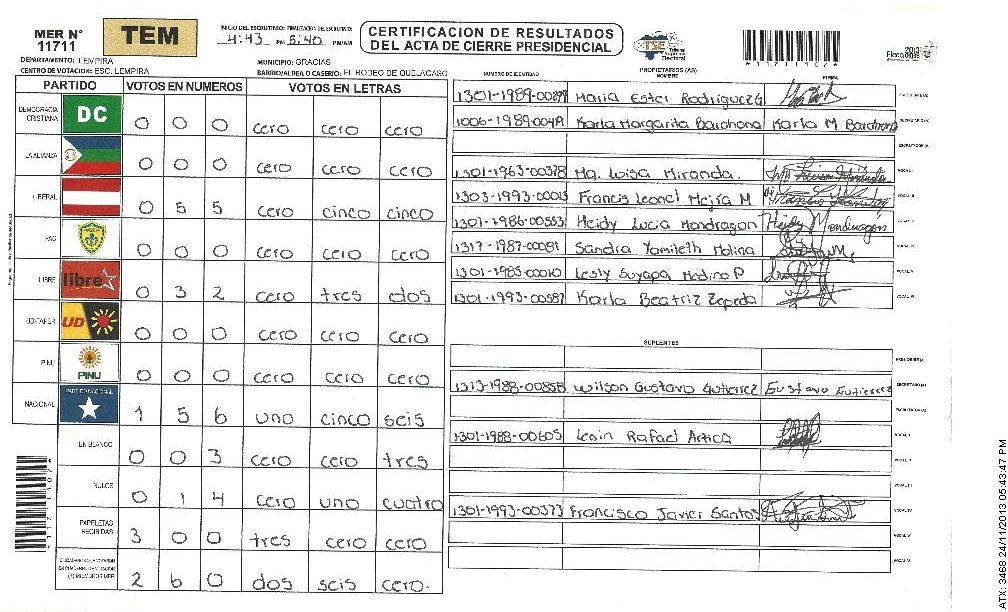 MER N° 11711
TEM
INICIO DEL ESCRUTINIO: FINALIZACION DEL ESCRUTINIO:
4:43 PM 5:40 PM/AM
CERTIFICACION DE RESULTADOS
DEL ACTA DE CIERRE PRESIDENCIAL
TSE Tribunal Supremo Electoral
*11711107*
2013
DEPARTAMENTO: LEMPIRA
MUNICIPIO: GRACIAS
CENTRO DE VOTACION: ESC. LEMPIRA
BARRIO/ALDEA O CASERIO: EL RODEO DE QUELACASQUE
PARTIDO VOTOS EN NUMEROS VOTOS EN LETRAS
DEMOCRACIA CRISTIANA DC 0 0 0 cero cero cero
LA ALIANZA 0 0 0 cero cero cero
LIBERAL 0 5 5 cero cinco cinco
PAC 0 0 0 cero cero cero
LIBRE libre 0 3 2 cero tres dos
UD-FAPER UD 0 0 0 cero cero cero
PINU PINU 0 0 0 cero cero cero
NACIONAL PARTIDO NACIONAL 1 5 6 uno cinco seis
EN BLANCO 0 0 3 cero cero tres
NULOS 0 1 4 cero uno cuatro
PAPELETAS RECIBIDAS 3 0 0 tres cero cero
(+) MIEMBROS MER 2 6 0 dos seis cero.
NUMERO DE IDENTIDAD PROPIETARIOS (AS) NOMBRE FIRMA
Maria Ester Rodriguez G PRESIDENTE (A)
Karla Margarita Barahona Karla M Barahona SECRETARIO (A)
ESCRUTADOR (A)
1301-1963-00378 Ma. Luisa Miranda. VOCAL I
1303-1993-00013 Francis Leonel Mejia M VOCAL II
1301-1986-00553 Heidy Lucia Mondragon Heidy Mondragón VOCAL III
1317-1987-00081 Sandra Yamileth Molina VOCAL IV
1301-1985-00010 Lesly Suyapa Medina P VOCAL V
1301-1993-00587 Karla Beatriz Zepeda VOCAL VI
SUPLENTES
PRESIDENTE (A)
1313-1988-00858 Wilson Gustavo Gutierrez Gustavo Gutierrez SECRETARIO (A)
ESCRUTADOR (A)
1301-1988-00605 Lenin Rafael Artica VOCAL I
VOCAL II
VOCAL III
1301-1993-00373 Francisco Javier Santos VOCAL IV
VOCAL V
VOCAL VI
*11711107*
ATX: 3468 24/11/2013 05:43:47 PM